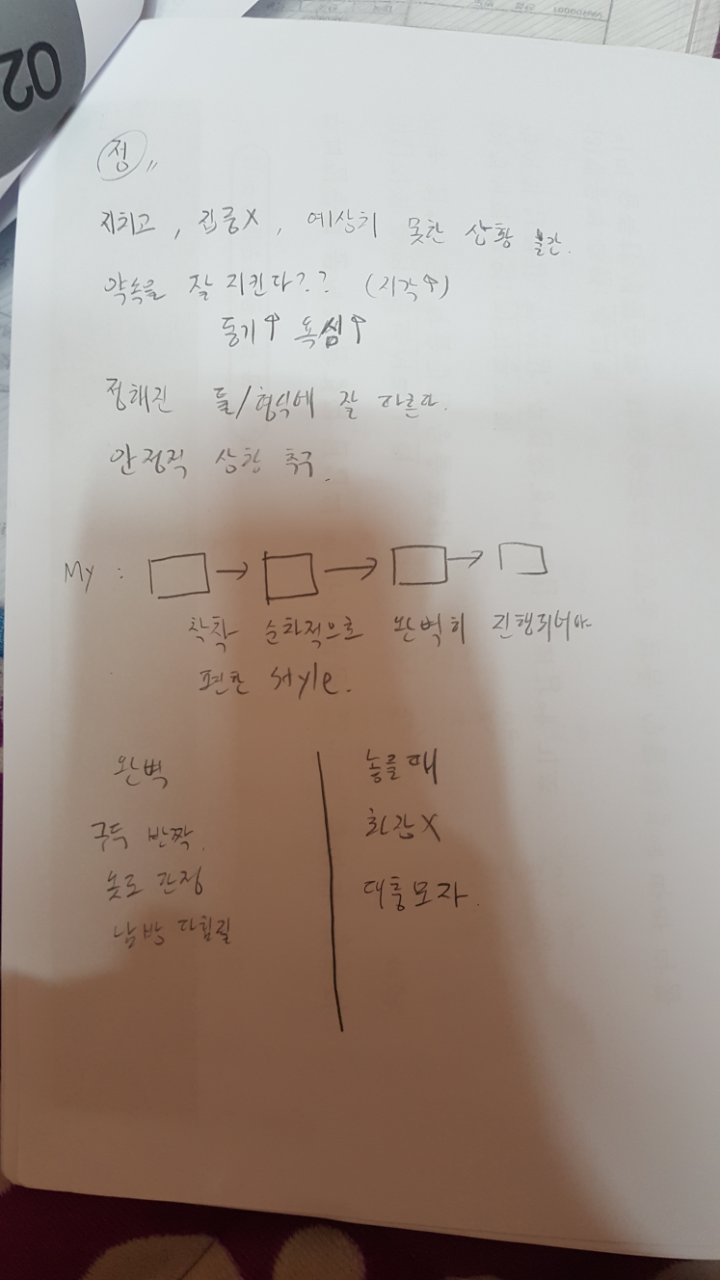 02
정 〃
지치고, 집중X, 예상치 못한 상황 불안.
약속을 잘 지킨다?? (지각↑)
동기↑ 욕심↑
정해진 틀/형식에 잘 따른다.
안정적 상황 추구.
My : □→□→□→□
착착 순차적으로 완벽히 진행되어야
편한 style.
완벽
구두 반짝.
옷도 단정
남방 다림질
놓을때
화장X
대충모자.